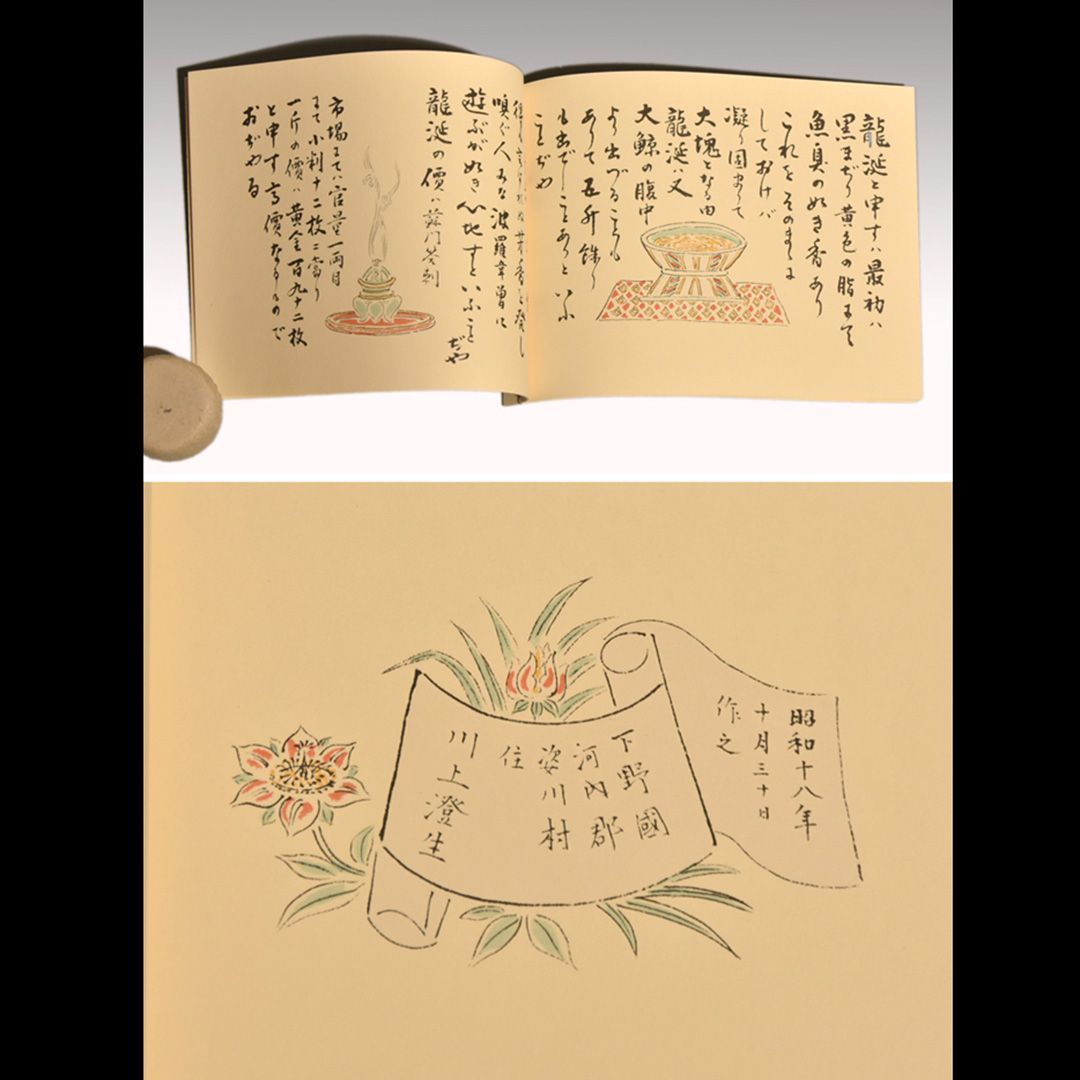 龍涎と申すハ最初ハ
黒まぢり黄色の脂まて
魚臭の如き香あり
これをそのまゝに
しておけバ
凝り固まりて
大塊となる由
龍涎ハ又
大鯨の腹中
より出づることも
ありて五升餘り
も出でしことありと
いふ
ことぢや
嗅ぐ人みな波羅葦曽に
遊ぶが如き心地すといふこと
ぢや
龍涎の價ハ蘇門荅剌
市場にてハ官量一両目
にて小判十二枚ニ當り
一斤の價ハ黄金百九十二枚
と申す高價なるので
おぢやる
昭和十八年
十月三十日
作之
下野國
河内郡
姿川村
住
川上澄生